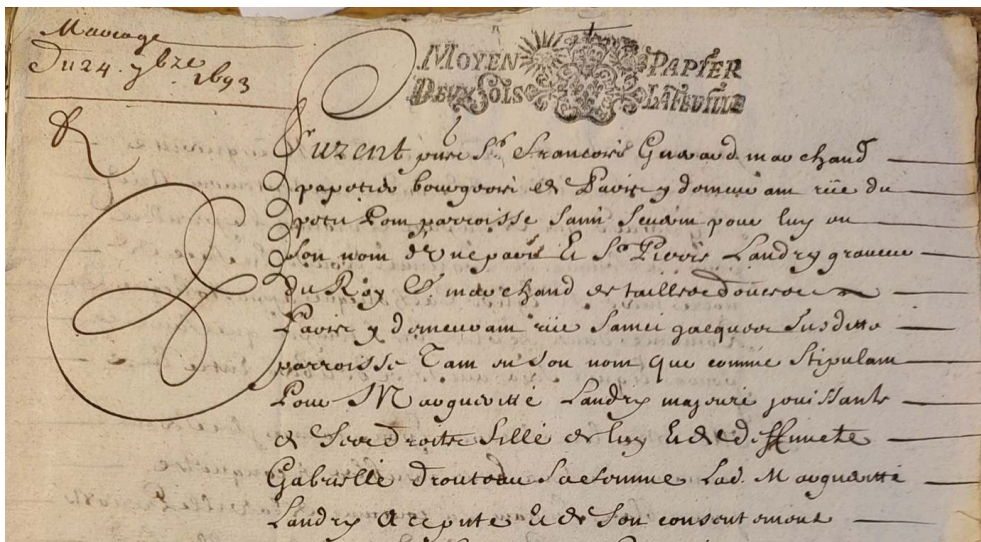 Mariage
Du 24. 7bre 1693
MOYEN PAPIER
DEUX SOLS LA FEUILLE
Furent pnts Sr. Francois Guerard marchand
papetier bourgeois de Paris y demeurant rüe du
petit Pont parroisse Saint Severin pour luy en
son nom d'une part Et Sr. Pierre Landry graveur
du Roy & marchand de tailles douces a
Paris y demeurant rüe Saint Jacques susditte
parroisse Tant en son nom que comme stipulant
Pour Margueritte Landry majeure jouissante
de ses droits fille de luy Et de deffuncte
Gabrielle Drouteau sa femme Lad. Marguerite
Landry a ce pnte Et de son consentement